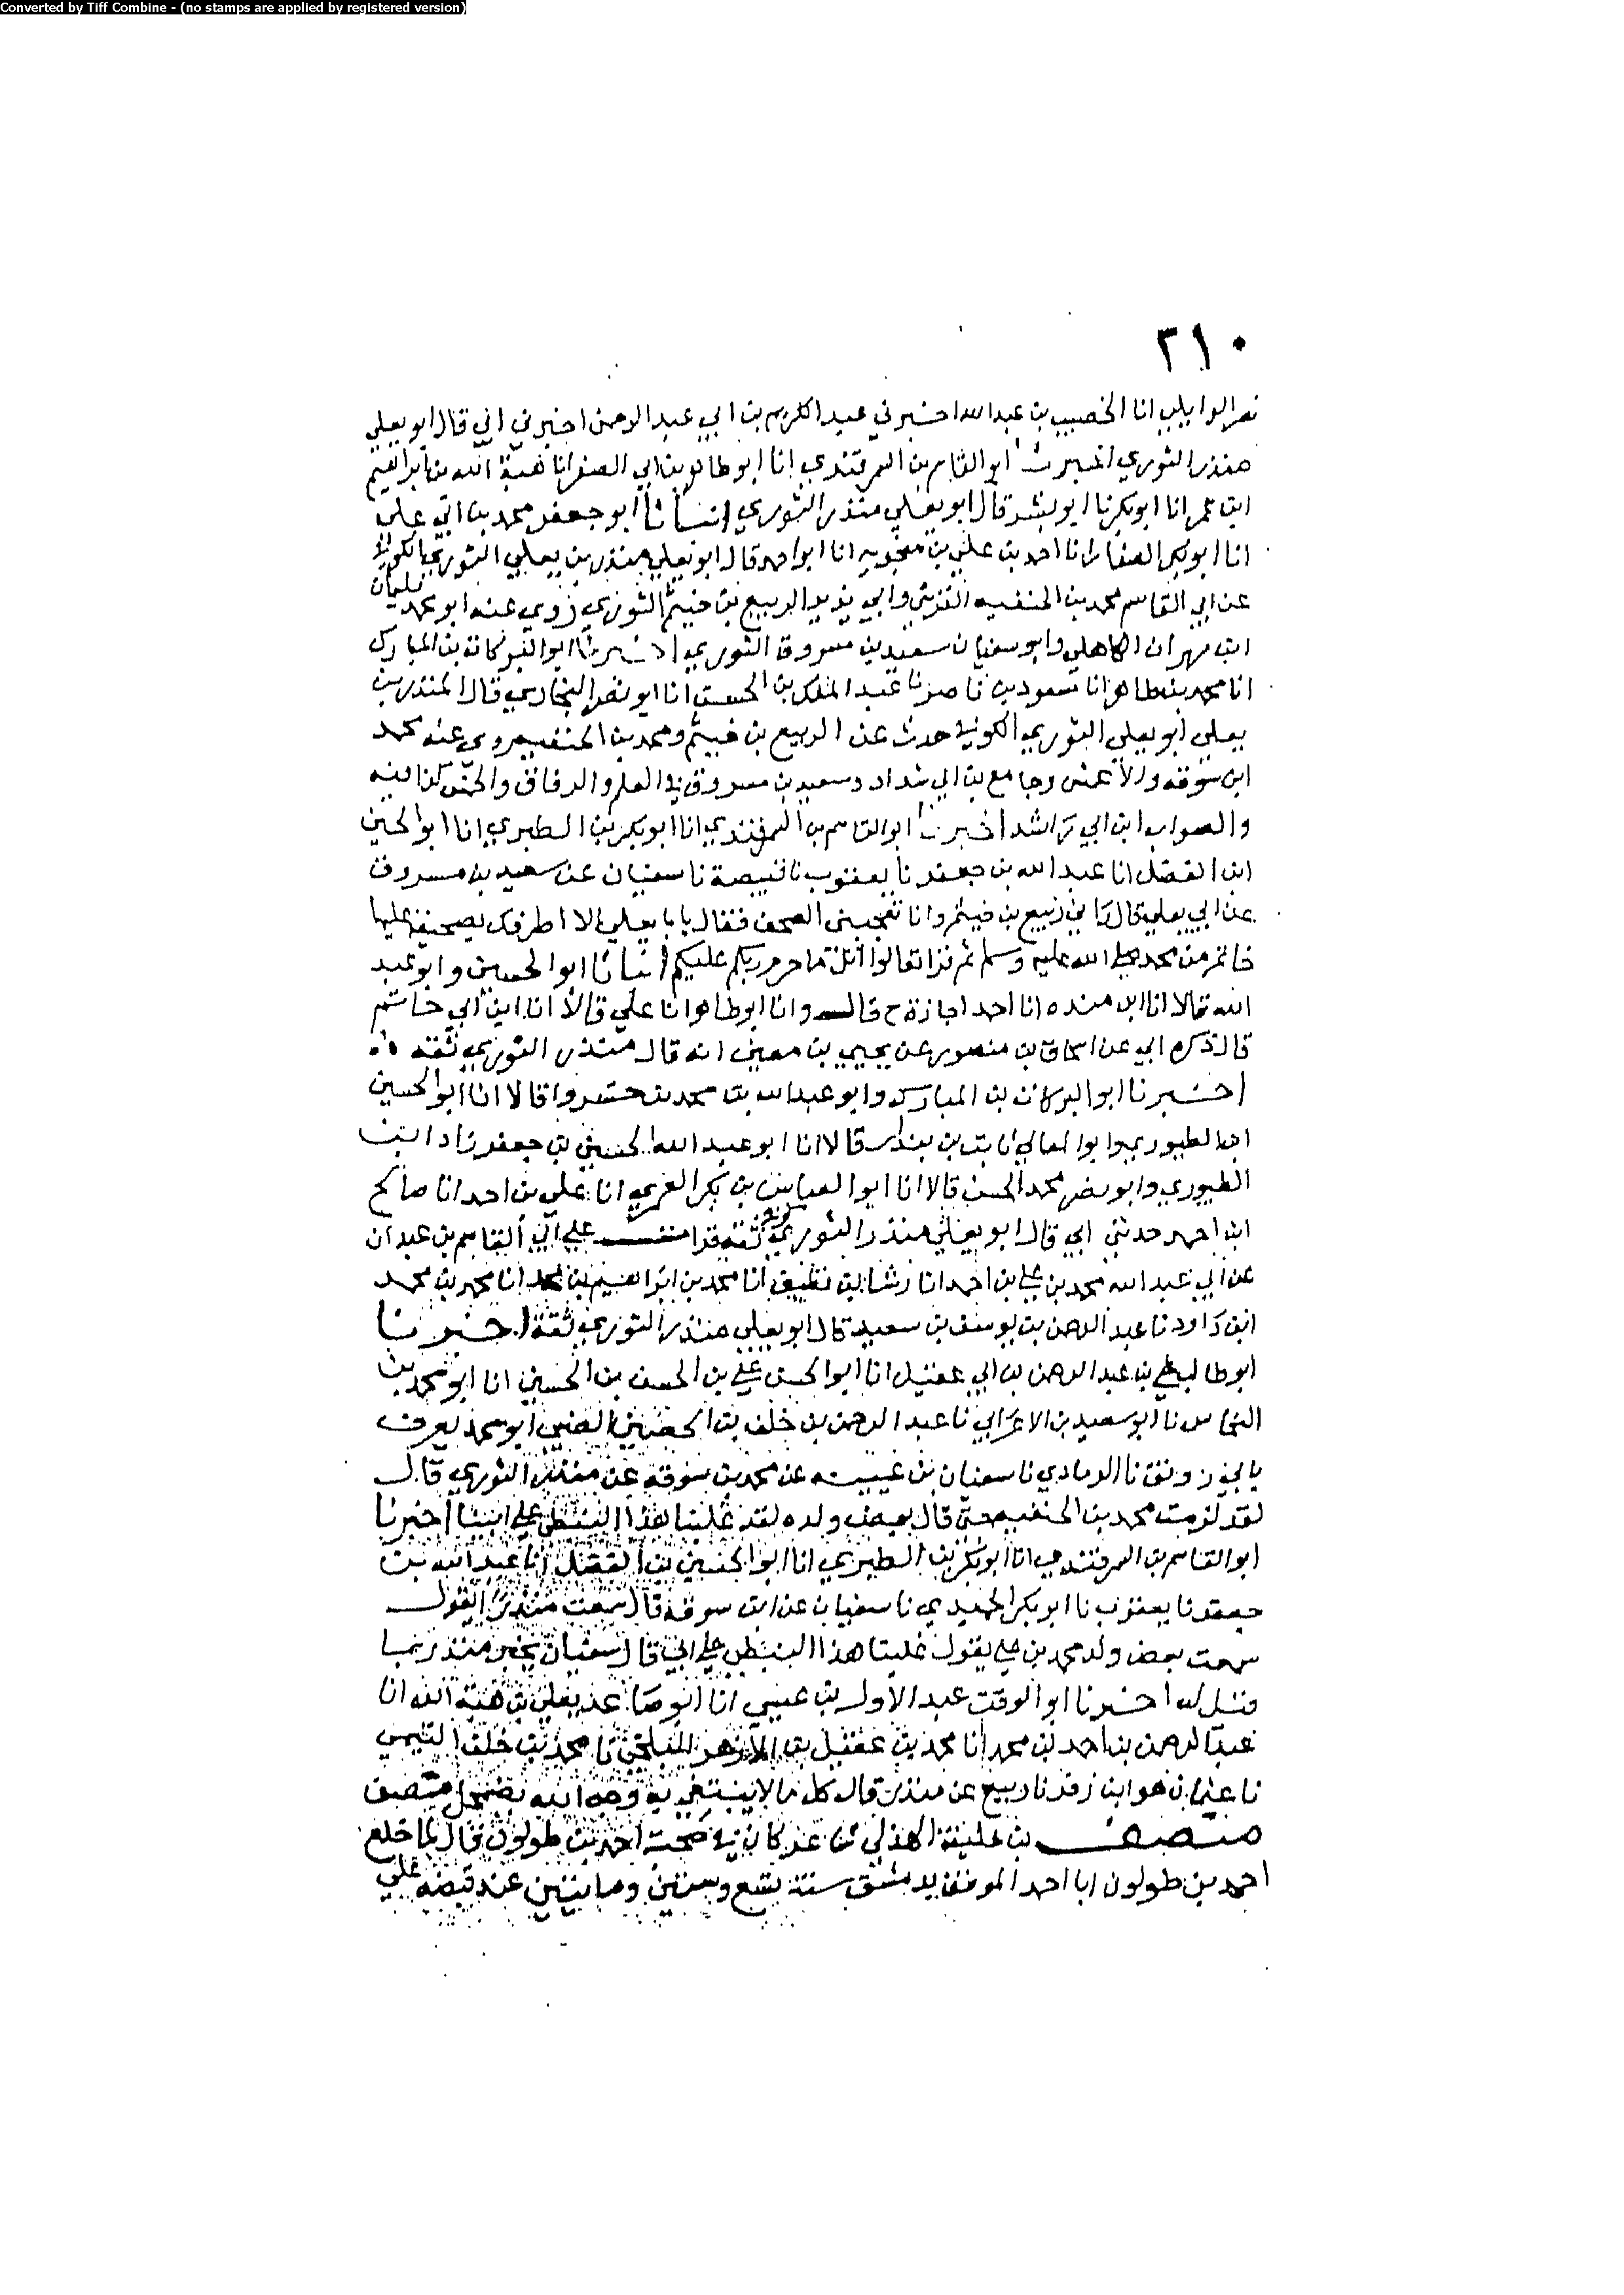 Converted by Tiff Combine - (no stamps are applied by registered version)
٢١٠
نصر الوايلي انا الخصيب بن عبد الله اخبرني عبد الكريم بن ابي عبد الرحمن اخبرني ابي قال ابو يعلي
منذر الثوري اخبرنا ابو القاسم بن السمرقندي انا ابو طاهر بن ابي الصقر انا هبة الله بن ابراهيم
ابن عمر انا ابو بكر نا ابو بشر قال ابو يعلي منذر الثوري انبانا ابو جعفر محمد بن ابي علي
انا ابو بكر الصفار انا احمد بن علي بن منجويه انا ابو احمد قال ابو يعلي منذر بن يعلي الثوري الكوفي
عن ابي القاسم محمد بن الحنفيه القرشي وابي يزيد الربيع بن خثيم الثوري روي عنه ابو محمد سليمان
ابن مهران الكاهلي وابو سفيان سعيد بن مسروق الثوري اخبرنا ابو البركات بن المبارك
انا محمد بن طاهر انا مسعود بن ناصر نا عبد الملك بن الحسن انا ابو نصر البخاري قال المنذر بن
يعلي ابو يعلي الثوري الكوفي حدث عن الربيع بن خثيم ومحمد بن الحنفيه روي عنه محمد
ابن سوقه والاعمش وجامع بن ابي شداد وسعيد بن مسروق في العلم والرقاق والخمس كذا فيه
والصواب ابن ابي راشد اخبرنا ابو القاسم بن السمرقندي انا ابو بكر بن الطبري انا ابو الحسين
ابن الفضل انا عبد الله بن جعفر نا يعقوب نا قبيصة نا سفيان عن سعيد بن مسروق
عن ابي يعلي قال راني ربيع بن خثيم وانا تعجبني الصحف فقال يابا يعلي الا اطرفك بصحيفة عليها
خاتم من محمد صلي الله عليه وسلم ثم قرا تعالوا اتل ما حرم ربكم عليكم انبانا ابو الحسين وابو عبد
الله قالا انا ابن منده انا احمد اجازة ح قال وانا ابو طاهر انا علي قالا انا ابن ابي حاتم
قال ذكره ابي عن اسحاق بن منصور عن يحيي بن معين انه قال منذر الثوري ثقه
اخبرنا ابو البركات بن المبارك وابو عبد الله بن محمد بن خسروا قالا انا ابو الحسين
ابن الطيوري وابو المعالي ثابت بن بندار قالا انا ابو عبد الله الحسين بن جعفر زاد ابن
الطيوري وابو نصر محمد بن الحسن قالا انا ابو العباس بن بكر الغمري انا علي بن احمد انا صالح
ابن احمد حدثني ابي قال ابو يعلي منذر الثوري كوفي ثقه قرات علي ابي القاسم بن عبدان
عن ابي عبد الله محمد بن علي بن احمد انا رشا بن نظيف انا محمد بن ابراهيم بن محمد انا محمد بن محمد
ابن داود نا عبد الرحمن بن يوسف بن سعيد قال ابو يعلي منذر الثوري ثقة اخبرنا
ابو طالب علي بن عبد الرحمن بن ابي عقيل انا ابو الحسن علي بن الحسن بن الحسين انا ابو محمد بن
النحاس نا ابو سعيد بن الاعرابي نا عبد الرحمن بن خلف بن الحصين الضبي ابو محمد يعرف
نا الرمادي نا سفيان بن عيينه عن محمد بن سوقه عن منذر الثوري قال
لقد لزمت محمد بن الحنفيه حتي قال بعض ولده لقد غلبنا هذا النبطي علي ابينا اخبرنا
ابو القاسم بن السمرقندي انا ابو بكر بن الطبري انا ابو الحسين بن الفضل انا عبد الله بن
جعفر نا يعقوب نا ابو بكر الحميدي نا سفيان عن ابن سوقه قال سمعت منذرا يقول
سمعت بعض ولد محمد بن علي يقول غلبنا هذا النبطي علي ابي قال سفيان يخبر منذر بما
قيل له اخبرنا ابو الوقت عبد الاول بن عيسي انا ابو صاعد يعلي بن هبة الله انا
عبد الرحمن بن احمد بن محمد انا محمد بن عقيل بن الازهر البلخي نا محمد بن خلف التيمي
نا عثمان هو ابن زفر نا ربيع عن منذر قال كل ما لا يبتغي به وجه الله يضمحل منتصف
منتصف بن خليفة الهذلي شاعر كان في صحبة احمد بن طولون قال لما خلع
احمد بن طولون ابا احمد الموفق بدمشق سنة تسع وستين ومايتين عند قبضه علي